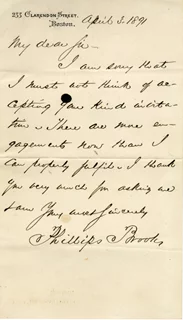 233 CLARENDON STREET,
Boston.
April 3. 1891
My dear Sir -
I am sorry that
I must not think of ac-
cepting your kind invita-
tion. There are more en-
gagements now than I
can properly fulfil. I thank
you very much for asking me
& am Yours most sincerely
Phillips Brooks